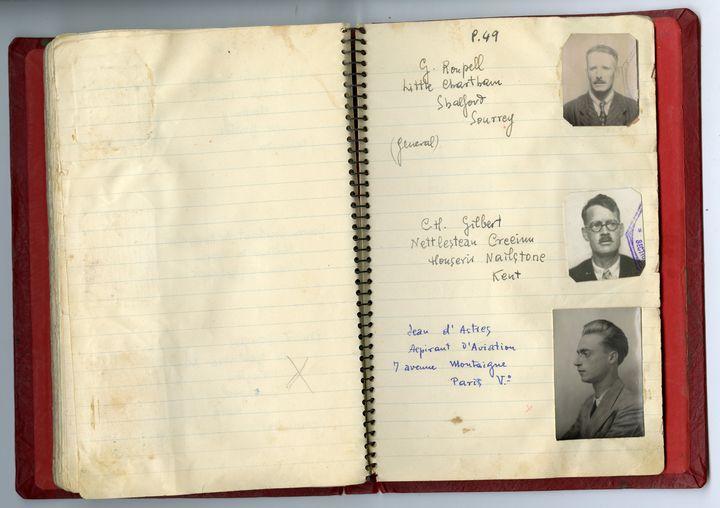 P.49
G. Roupell
Little Chartham
Shalford
Sourrey
(General)
C.H. Gilbert
Nettlestean Creeinn
Honserir Nailstone
Kent
Jean d'Astres
Aspirant D'Aviation
7 avenue Montaigne
Paris V.º
X
SECTI